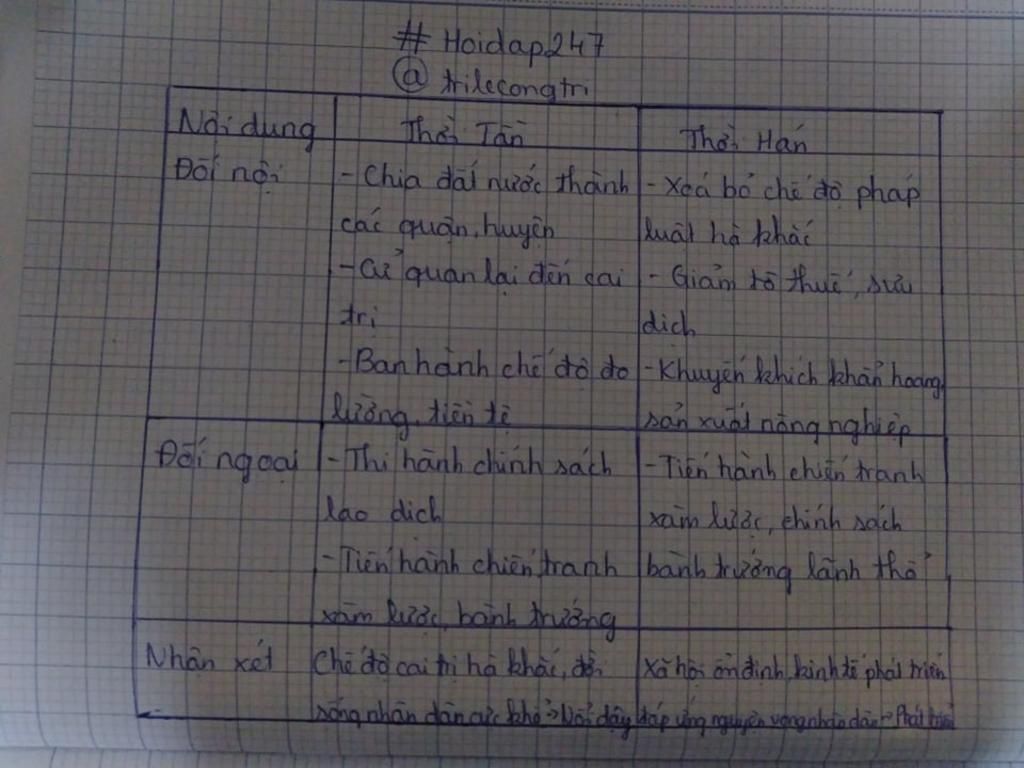 # Hoidap247
@ trilecongtri
Nội dung
Thời Tần
Thời Hán
Đối nội
- Chia đất nước thành
các quận, huyện
- Cử quan lại đến cai
trị
- Ban hành chế độ đo
lường, tiền tệ
- Xoá bỏ chế độ pháp
luật hà khắc
- Giảm tô thuế, sưu
dịch
- Khuyến khích khẩn hoang
sản xuất nông nghiệp
Đối ngoại
- Thi hành chính sách
lao dịch
- Tiến hành chiến tranh
xâm lược, bành trướng
- Tiến hành chiến tranh
xâm lược, chính sách
bành trướng lãnh thổ
Nhận xét
Chế độ cai trị hà khắc, đời
sống nhân dân cực khổ → Nổi dậy
Xã hội ổn định, kinh tế phát triển
đáp ứng nguyện vọng nhân dân → Phát triển